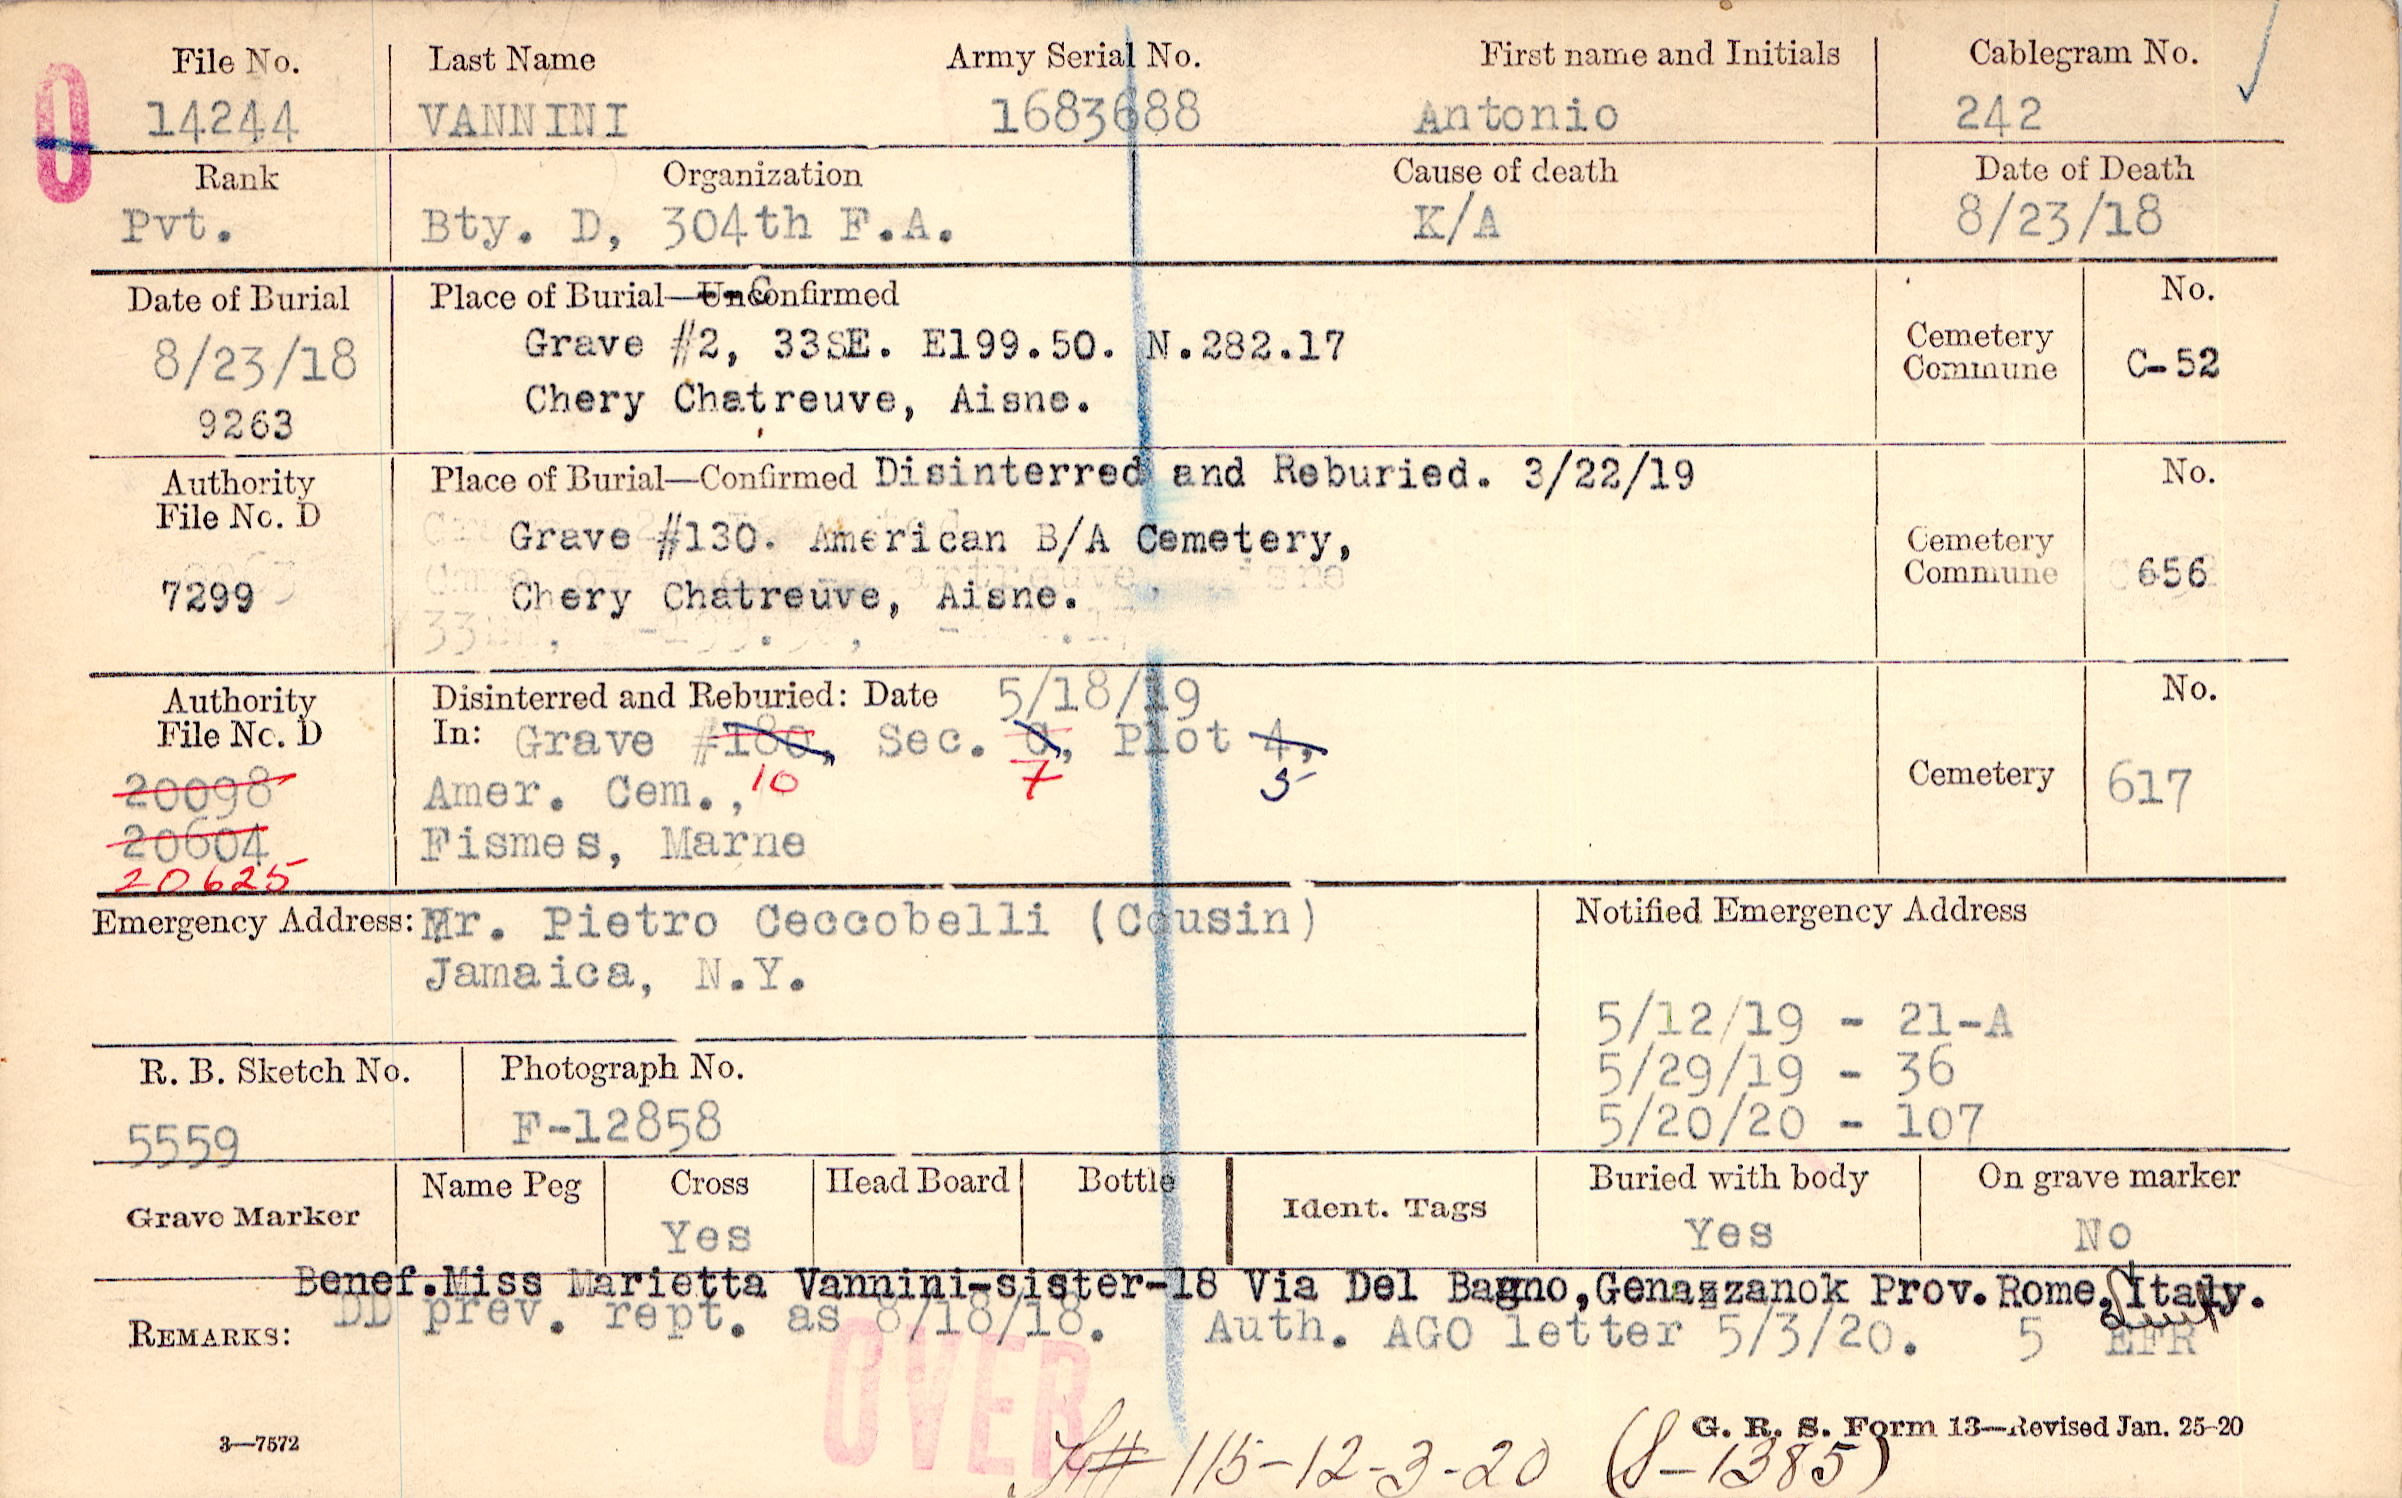 0
File No. Last Name Army Serial No. First name and Initials Cablegram No.
14244 VANNINI 1683688 Antonio 242
Rank Organization Cause of death Date of Death
Pvt. Bty. D, 304th F.A. K/A 8/23/18
Date of Burial Place of Burial—Unconfirmed No.
8/23/18 Grave #2, 33SE. E199.50. N.282.17 Cemetery Commune C-52
9263 Chery Chatreuve, Aisne.
Authority File No. D Place of Burial—Confirmed Disinterred and Reburied. 3/22/19 No.
Grave #130. American B/A Cemetery, Cemetery Commune 656
7299 Chery Chatreuve, Aisne.
Authority File No. D Disinterred and Reburied: Date 5/18/19 No.
In: Grave #180, Sec. C, Plot 4,
10 7 5
20098 Amer. Cem., Cemetery 617
20604 Fismes, Marne
20625
Emergency Address: Mr. Pietro Ceccobelli (Cousin) Notified Emergency Address
Jamaica, N.Y.
5/12/19 - 21-A
R. B. Sketch No. Photograph No. 5/29/19 - 36
5559 F-12858 5/20/20 - 107
Grave Marker Name Peg Cross Head Board Bottle Ident. Tags Buried with body On grave marker
Yes Yes No
Benef.Miss Marietta Vannini-sister-18 Via Del Bagno,Genazzanok Prov. Rome, Italy.
REMARKS: DD prev. rept. as 8/18/18. Auth. AGO letter 5/3/20. 5 EFR
OVER
3—7572 G. R. S. Form 13—Revised Jan. 25-20
# 115-12-3-20 (S-1385)